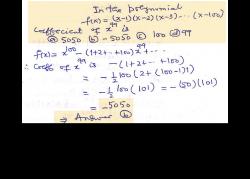 In the polynomial
f(x) = (x-1)(x-2)(x-3)...(x-100)
Coefficient of x^99 is
(a) 5050 (b) -5050 (c) 100 (d) 99
f(x) = x^100 - (1+2+..+100)x^99 + ...
∴ Coeff of x^99 is -(1+2+...+100)
= -1/2 100(2+(100-1)1)
= -1/2 100(101) = -(50)(101)
= -5050
⇒ Answer (b)